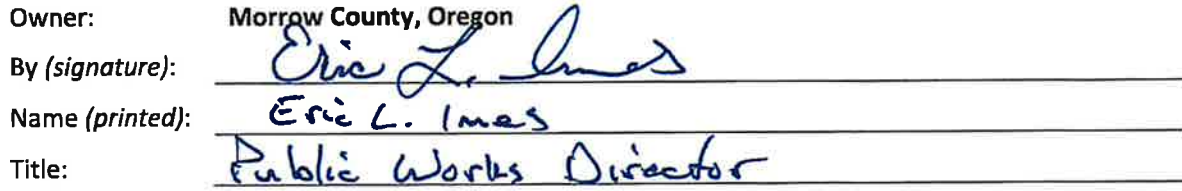 Owner: Morrow County, Oregon
By (signature): Eric L. Imes
Name (printed): Eric L. Imes
Title: Public Works Director